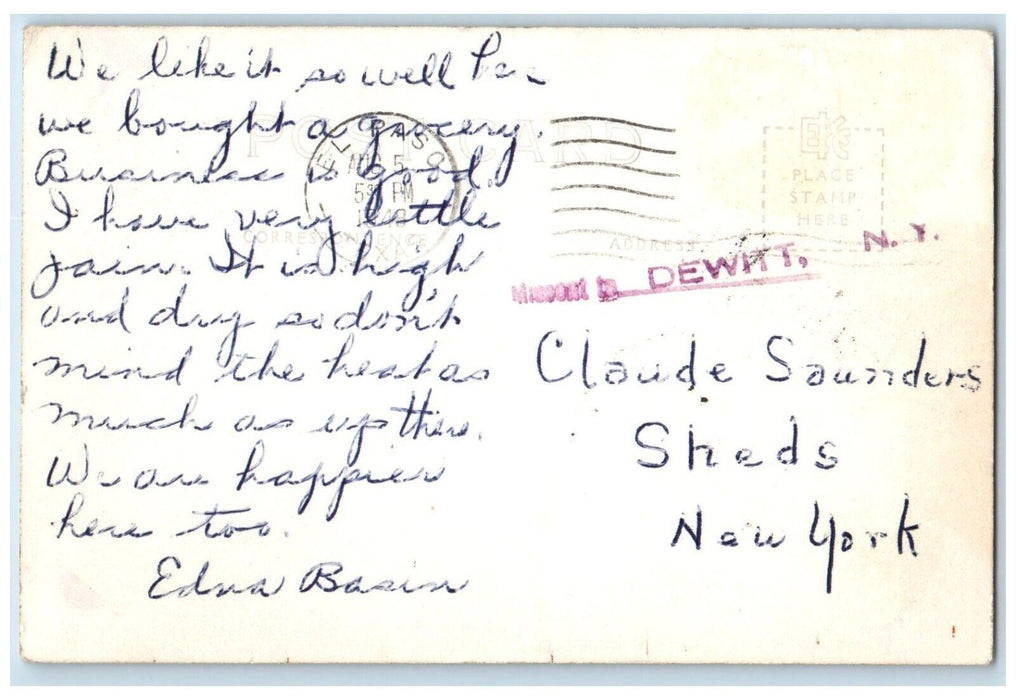 We like it so well here
we bought a grocery.
Business is good.
I have very little
pain. It is high
and dry so don't
mind the heat as
much as up there.
We are happier
here too.
Edna Basin
POST CARD
EL PASO
AUG 5
5 PM
TEX
CORRESPONDENCE
ADDRESS
EKC
PLACE
STAMP
HERE
Missent to DEWITT, N. Y.
Claude Saunders
Sheds
New York